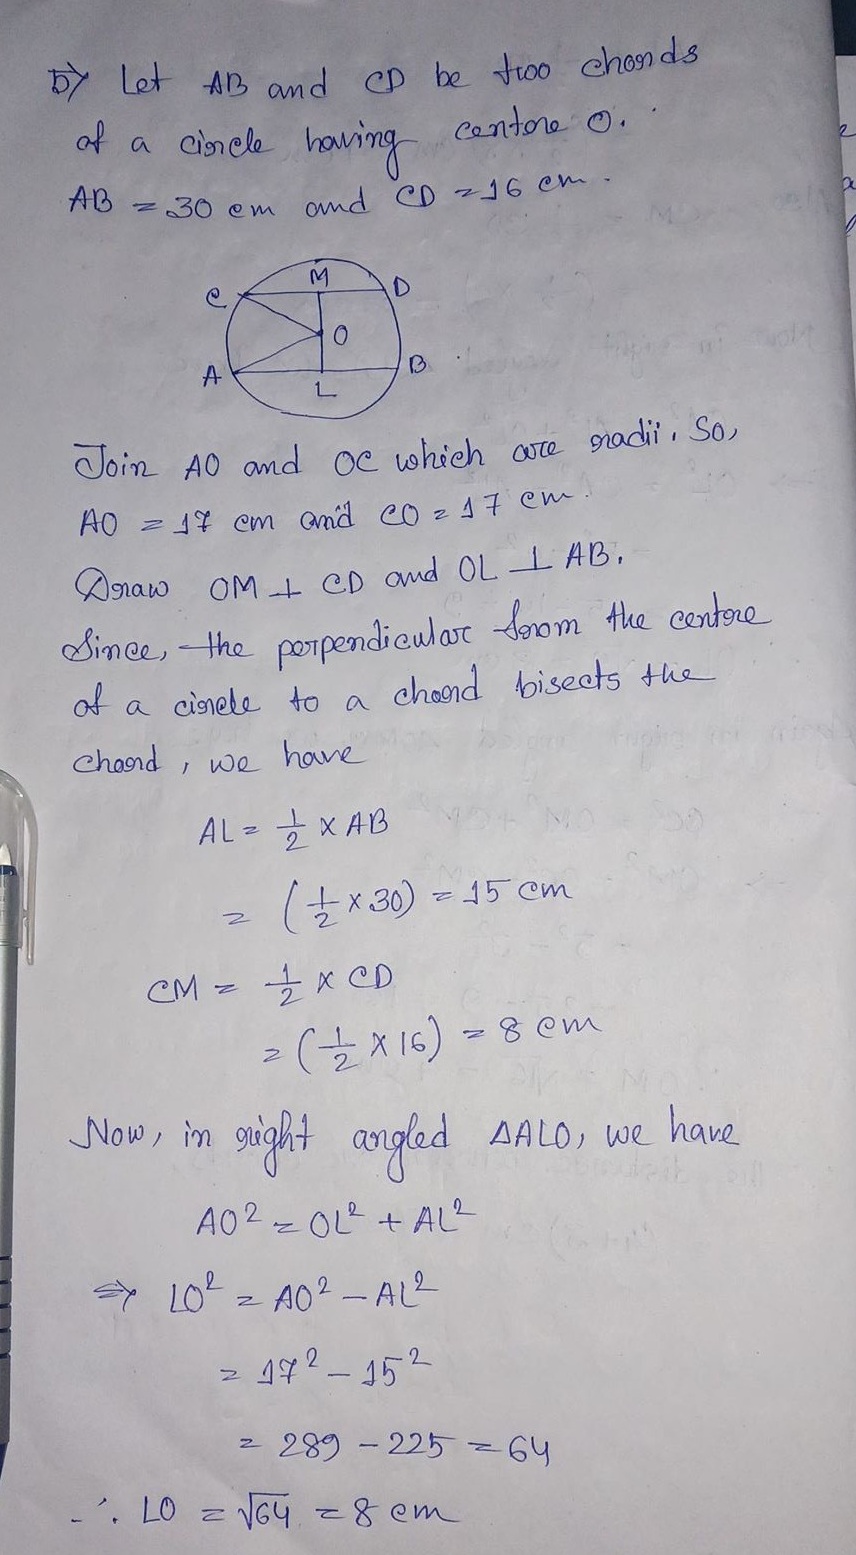 5) Let AB and CD be two chords
of a circle having centre O.
AB = 30 cm and CD = 16 cm.
C M D
O
A B
L
Join AO and OC which are radii. So,
AO = 17 cm and CO = 17 cm.
Draw OM ⊥ CD and OL ⊥ AB.
Since, the perpendicular from the centre
of a circle to a chord bisects the
chord, we have
AL = 1/2 × AB
= (1/2 × 30) = 15 cm
CM = 1/2 × CD
= (1/2 × 16) = 8 cm
Now, in right angled ΔALO, we have
AO² = OL² + AL²
⇒ LO² = AO² − AL²
= 17² − 15²
= 289 − 225 = 64
∴ LO = √64 = 8 cm